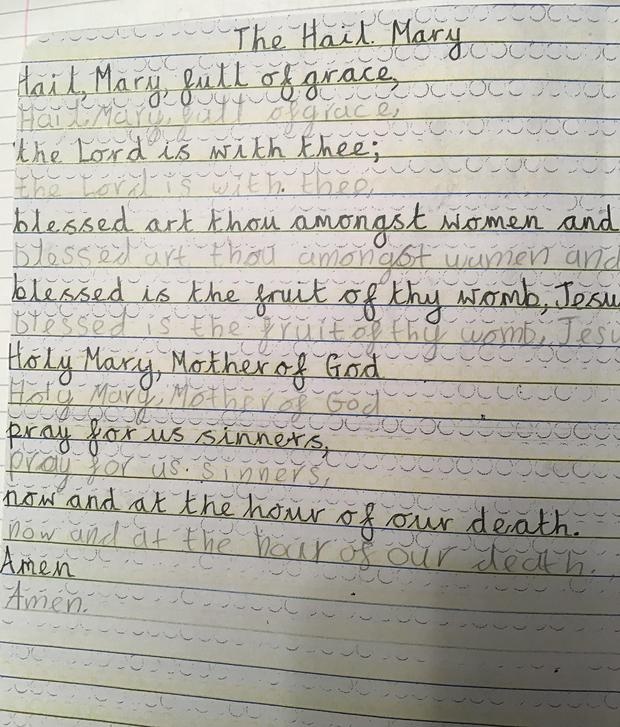 The Hail Mary
Hail, Mary, full of grace,
Hail, Mary, full of grace,
the Lord is with thee;
the Lord is with thee,
blessed art thou amongst women and
blessed art thou amongst wumen and
blessed is the fruit of thy womb, Jesu
blessed is the fruit of thy womb, Jesu
Holy Mary, Mother of God
Holy Mary, Mother of God
pray for us sinners,
pray for us sinners,
now and at the hour of our death.
now and at the hour of our death.
Amen
Amen.